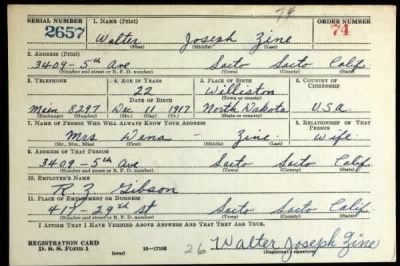 74
SERIAL NUMBER 1. NAME (Print) ORDER NUMBER
2657 Walter Joseph Zine 74
(First) (Middle) (Last)
2. ADDRESS (Print)
3409-5th Ave Sacto Sacto Calif.
(Number and street or R. F. D. number) (Town) (County) (State)
3. TELEPHONE 4. AGE IN YEARS 5. PLACE OF BIRTH 6. COUNTRY OF CITIZENSHIP
22 Williston
DATE OF BIRTH (Town or county)
Main 8297 Dec 11 1917 North Dakota U.S.A.
(Exchange) (Number) (Mo.) (Day) (Yr.) (State or country)
7. NAME OF PERSON WHO WILL ALWAYS KNOW YOUR ADDRESS 8. RELATIONSHIP OF THAT PERSON
Mrs. Dena - Zine Wife
(Mr., Mrs., Miss) (First) (Middle) (Last)
9. ADDRESS OF THAT PERSON
3409-5th Ave Sacto Sacto Calif
(Number and street or R. F. D. number) (Town) (County) (State)
10. EMPLOYER'S NAME
R. Z Gibson
11. PLACE OF EMPLOYMENT OR BUSINESS
417-29th St Sacto Sacto Calif
(Number and street or R. F. D. number) (Town) (County) (State)
I AFFIRM THAT I HAVE VERIFIED ABOVE ANSWERS AND THAT THEY ARE TRUE.
REGISTRATION CARD
D. S. S. Form 1 16-17105 26 Walter Joseph Zine
(Registrant's signature)